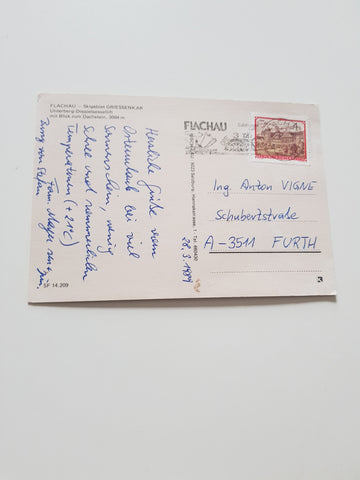 FLACHAU – Skigebiet GRIESSENKAR
Unterberg-Doppelsesselllift
mit Blick zum Dachstein, 3004 m
Herzliche Grüße vom
Osterurlaub bei viel
Sonnenschein, wenig
Schnee und sommerlichen
Temperaturen (+21°C)
Fam. Mayer sen. + jun.
28.3.1989
SF 14.209
FLACHAU
4
Ing. Anton VIGNE
Schubertstraße
A-3511 FURTH